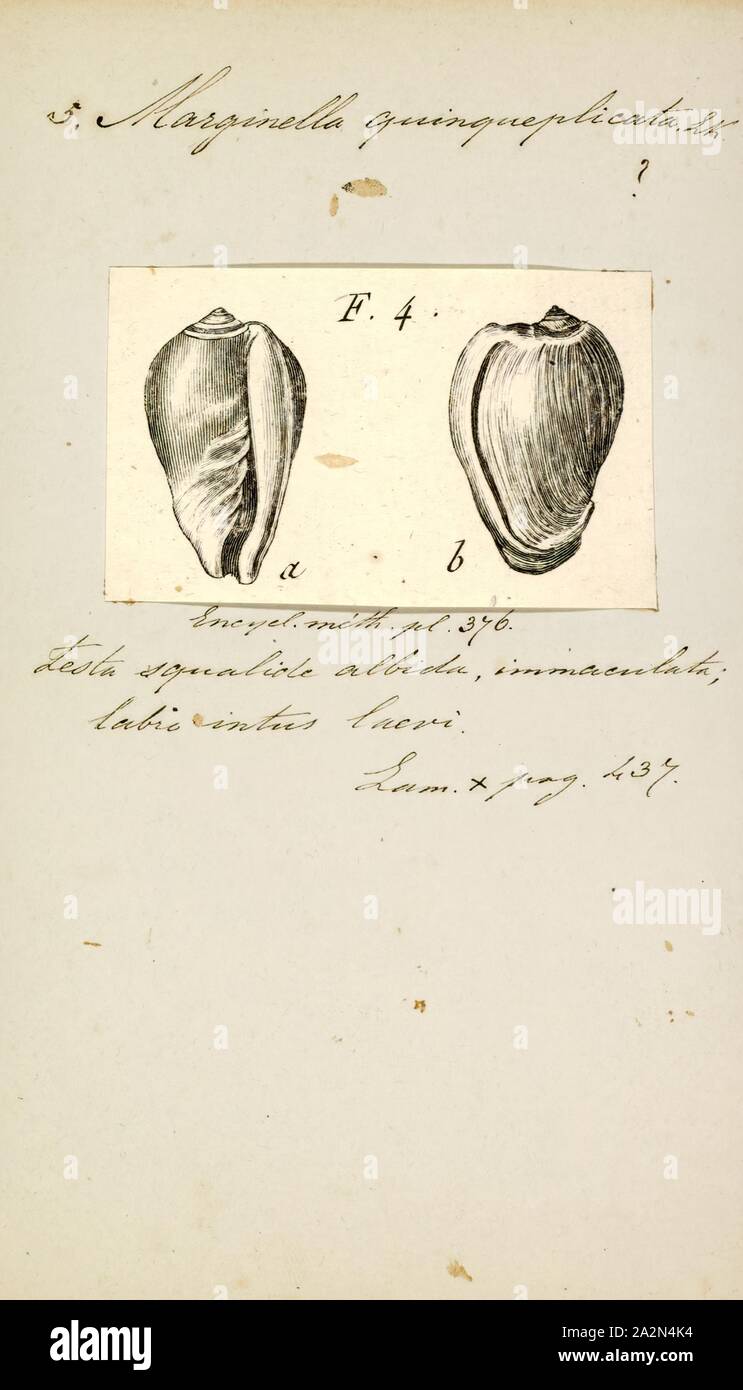 5. Marginella quinqueplicata. Lk.
?
F. 4.
a
b
Encycl. méth. pl. 376.
Testa squalide albida, immaculata;
labro intus laevi.
Lam. x pag. 437.
alamy
alamy
alamy
Image ID: 2A2N4K4
www.alamy.com